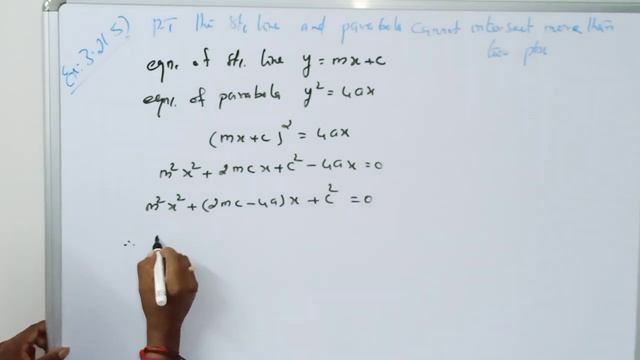 Ex. 3.21 5) P.T the st. line and parabola cannot intersect more than
two pts
eqn. of st. line y = mx + c
eqn. of parabola y² = 4ax
(mx+c)² = 4ax
m²x² + 2mcx + c² - 4ax = 0
m²x² + (2mc - 4a)x + c² = 0
∴